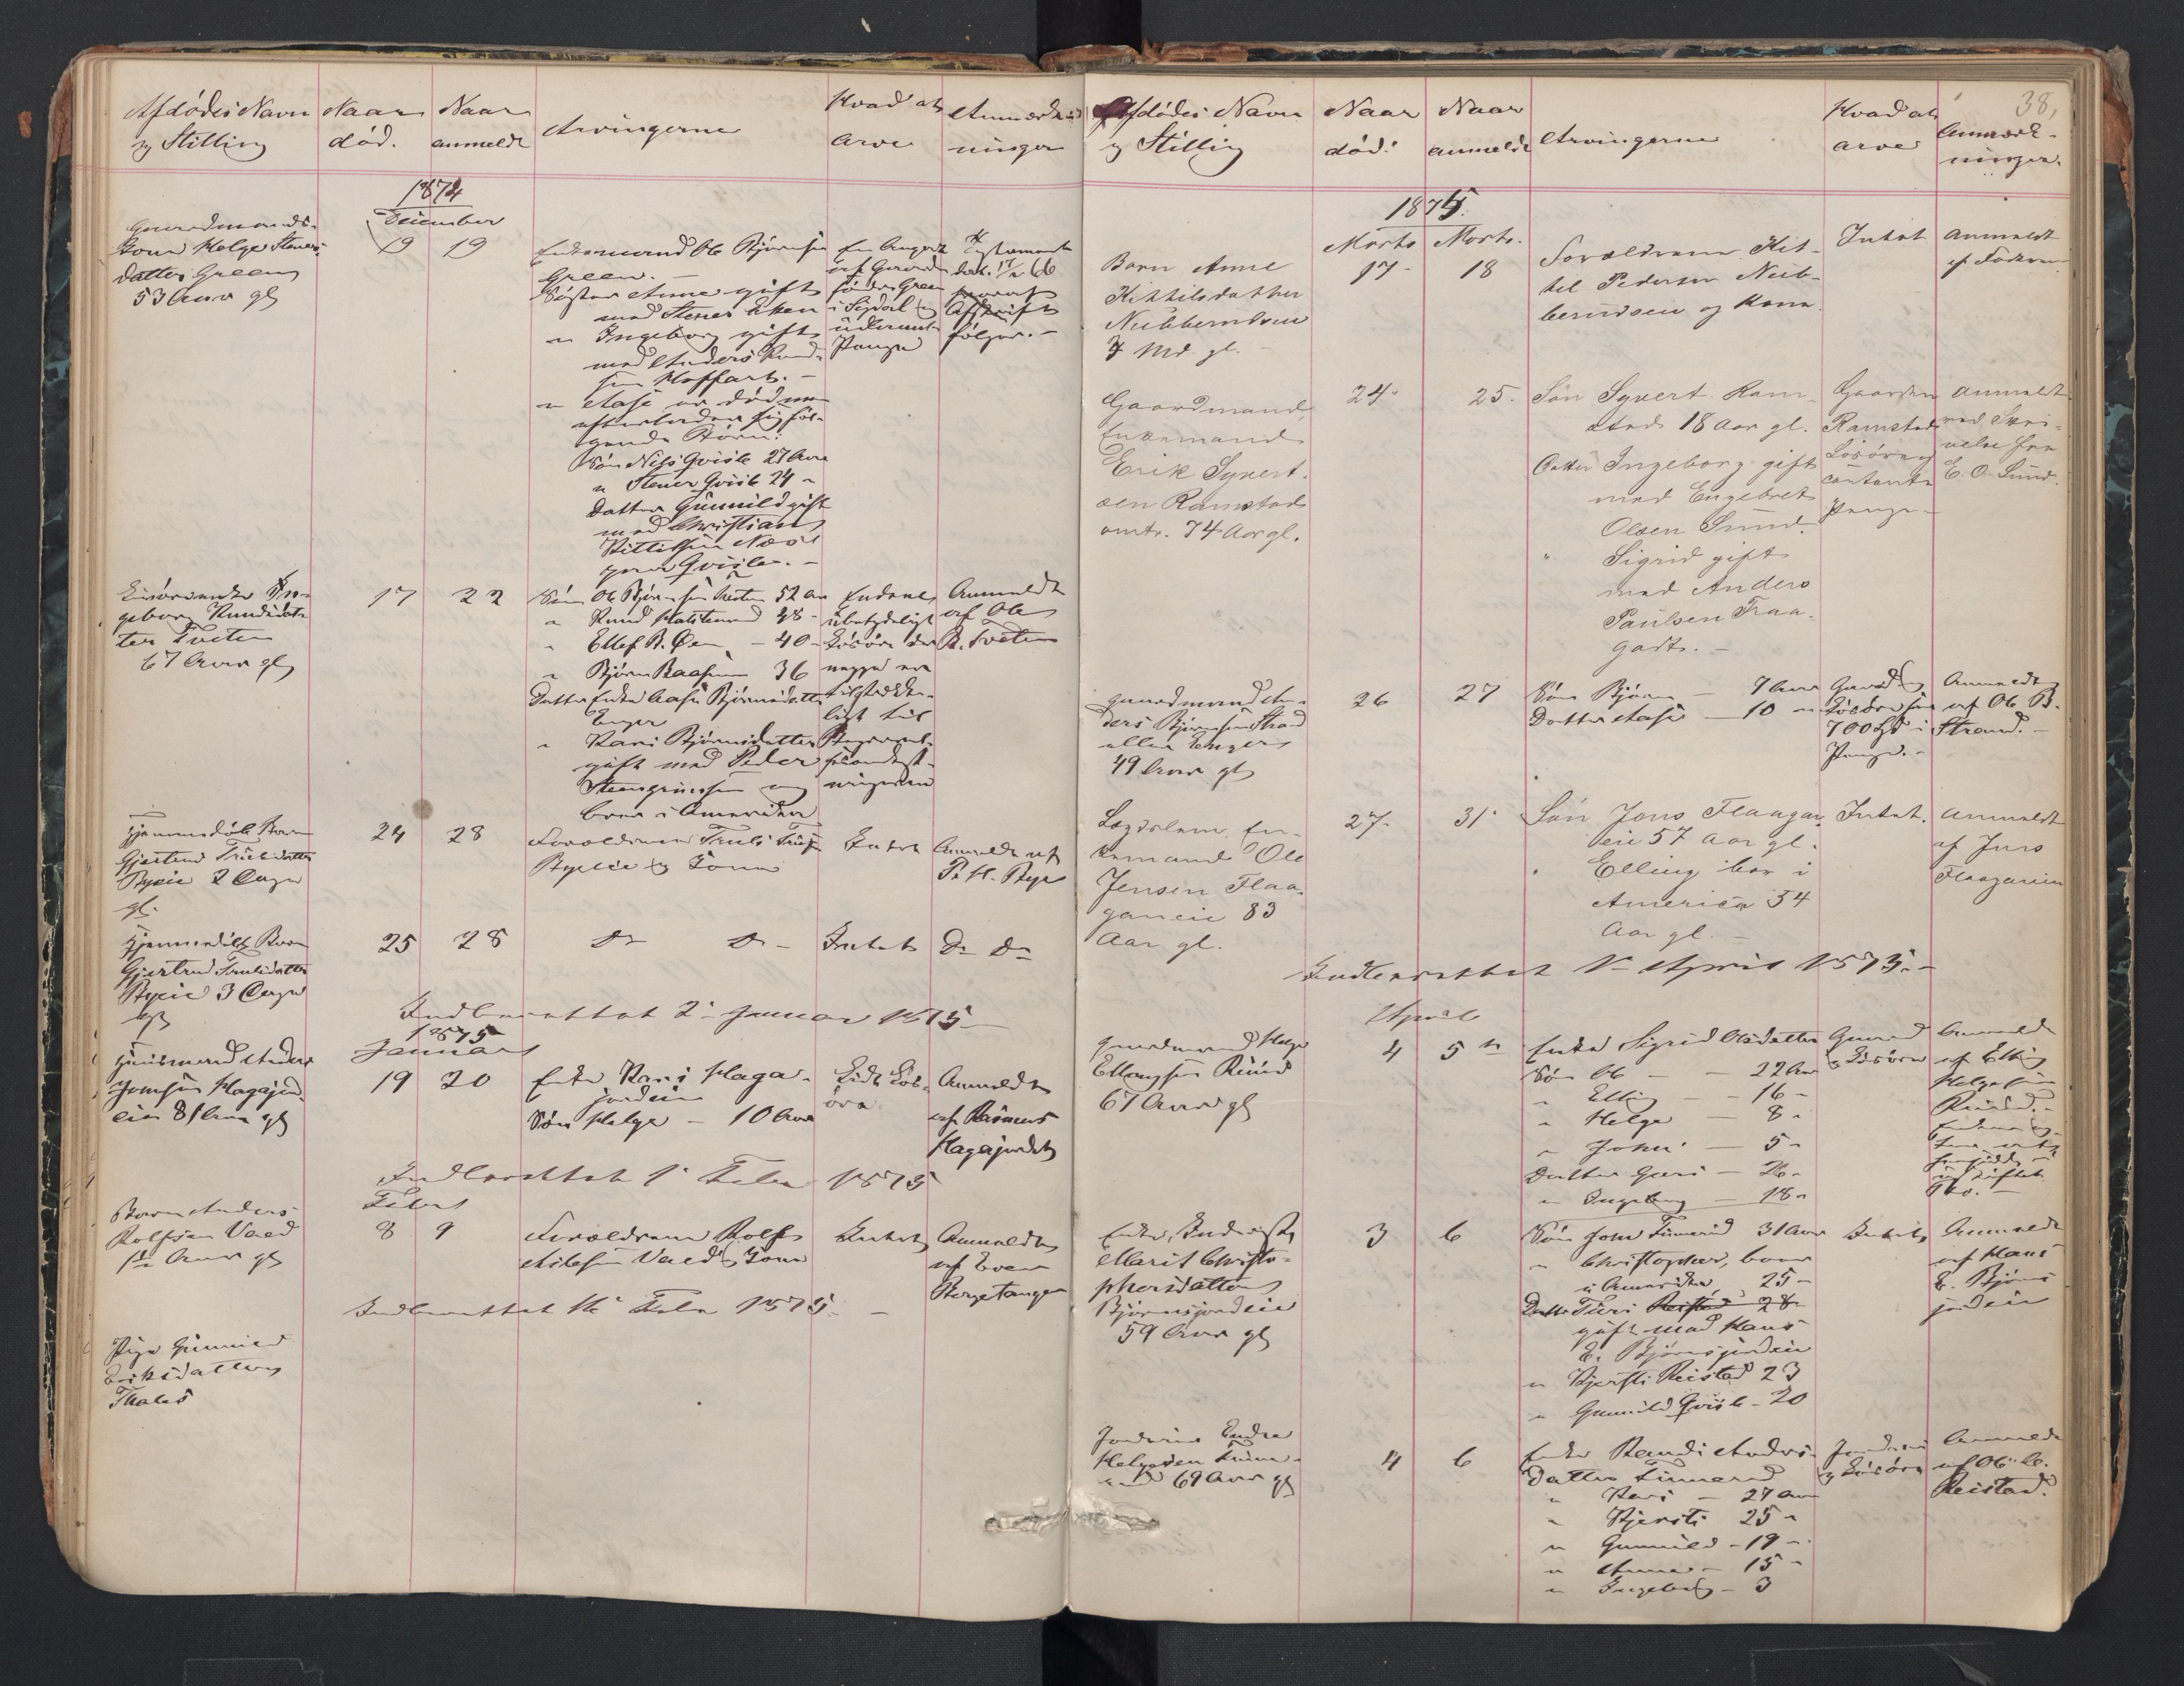 Afdødes Navn
og Stilling
Naar
død.
Naar
anmeldt
Arvingerne
Hvad at
arve
Anmærk
ninger
1874
December
Gaardmands-
kone Helga Steners-
datter Green
53 Aar gl
19
19
Enkemand Ole Bjørnsen
Green. –
Søster Anne gift
med Stener Eken
" Ingeborg gift
med Anders Knud-
sen Hoffart. –
" Aase er død men
efterlader sig føl-
gende Børn:
Søn Nils Qvisle 27 Aar
" Stener Qvisle 24 "
Datter Gunnild gift
med Christian
Kittilsen Næs
Qvisle. –
i Sigdal og
Penge
Testament
dat. 17/12 66
Afskrift
følger. –
geborg Knudsdat-
ter Tveten
67 Aar gl
17
22
Søn Ole Bjørnsen Tveten 52 Aar
" Knud 48 –
" Ellef B. Øen – 40 –
" Bjørn Baasen 36
Datter Enke Aase Bjørnsdatter
Enger
" Kari Bjørnsdatter
gift med Peder
Steengrimsen og
boer i Amerika
Endeel
ubetydeligt
Løsøre der
neppe er
tilstrække-
ligt til
Anmeldt
af Ole
B. Tveten
Hjemmedøbt Barn
Gjertrud Trulsdatter
Byeie 2 Dage
gl.
24
28
Forældrene Truls
Byeie og Kone
Intet
Anmeldt af
P. H. Bye
Hjemmedøbt Barn
Gjertrud Trulsdatter
Byeie 3 Dage
gl
25
28
Do Do –
Intet
Do Do
Indberettet 2. Januar 1875 –
1875
Januar
Huusmand Anders
Jonsen Hagajord-
eie 81 Aar gl
19
20
Enke Kari Haga-
jordeie
Søn Helge – 10 Aar
Lidt Løs-
øre
Anmeldt
af Rasmus
Hagajordet
Indberettet 1. Febr 1875
Febr
Barn Anders
Rolfsen Vaed
1½ Aar gl
8
9
Forældrene Rolf
Nilsen Vaed og Kone
Intet
Anmeldt
af Even
Borgetangen
Indberettet 16. Febr 1875. –
Pige Gunnild
Eriksdatter
Thales
38,
Afdødes Navn
og Stilling
Naar
død.
Naar
anmeldt
Arvingerne
Hvad at
arve
Anmærk-
ninger.
1875.
Marts
Marts.
Barn Anne
Kittilsdatter
Nubberudsen
7 Md. gl. –
17 –
18
Forældrene Kit-
til Pedersen Nub-
berudsen og Kone.
Intet
Anmeldt
af Faderen
Gaardmand,
Enkemand
Erik Syvert-
sen Ramstad
omtr. 74 Aar gl.
24.
25.
Søn Syvert Ram-
stad 18 Aar gl.
Datter Ingeborg gift
med Engebret
Olsen Sund.
" Sigrid gift
med Anders
Paulsen Fraa-
gadt. –
Gaarden
Ramstad
Løsøre og
contante
Penge –
Anmeldt
ved Skri-
velse fra
E. O. Sund.
Gaardmand An-
ders Bjørnsen Strand
eller Enger
49 Aar gl
26
27
Søn Bjørn – 7 Aar
Datter Aase – 10 "
Gaard og
Løsøre
700 Spd i
Penge. –
Anmeldt
af Ole B.
Strand. –
Lægdslem En-
kemand Ole
Jensen Flaa-
ganeie 83
Aar gl.
27.
31.
Søn Jens Flaagan-
eie 57 Aar gl.
" Elling bor i
America 54
Aar gl. –
Intet.
Anmeldt
af Jens
Flaaganeie
Indberettet 1. April 1875. –
April
Gaardmand Helge
Ellingsen Ruud
67 Aar gl
4
5
Enke Sigrid Olsdatter
Søn Ole – – 22 Aar
" Elling – – 16 –
" Helge – 8 "
" John – 5 "
Datter Guri – 26 "
" Ingeborg – 18 "
Gaard
og Løsøre
Anmeldt
af Elling
Helgesen
Ruud. –
Enke, Inderst
Marit Christo-
phersdatter
Bjørnsjordeie
59 Aar gl
3
6
Søn John 31 Aar
" Christopher, boer
i Amerika 25 –
Datter Turi Reistad 28
gift med Hans
E. Bjørnsjordeie
" Kjersti Reistad 23
" Gunnild Qvisle – 20
Intet
Anmeldt
af Hans
E. Bjørns-
jordeie
Helgesen
69 Aar gl
4
6
Enke Randi Anders-
datter
" Kari – 27 Aar
" Kjersti 25 "
" Gunnild – 19 –
" Anne – 15 "
" Ingeborg – 3
og Løsøre
Anmeldt
af Ole C.
Reistad.